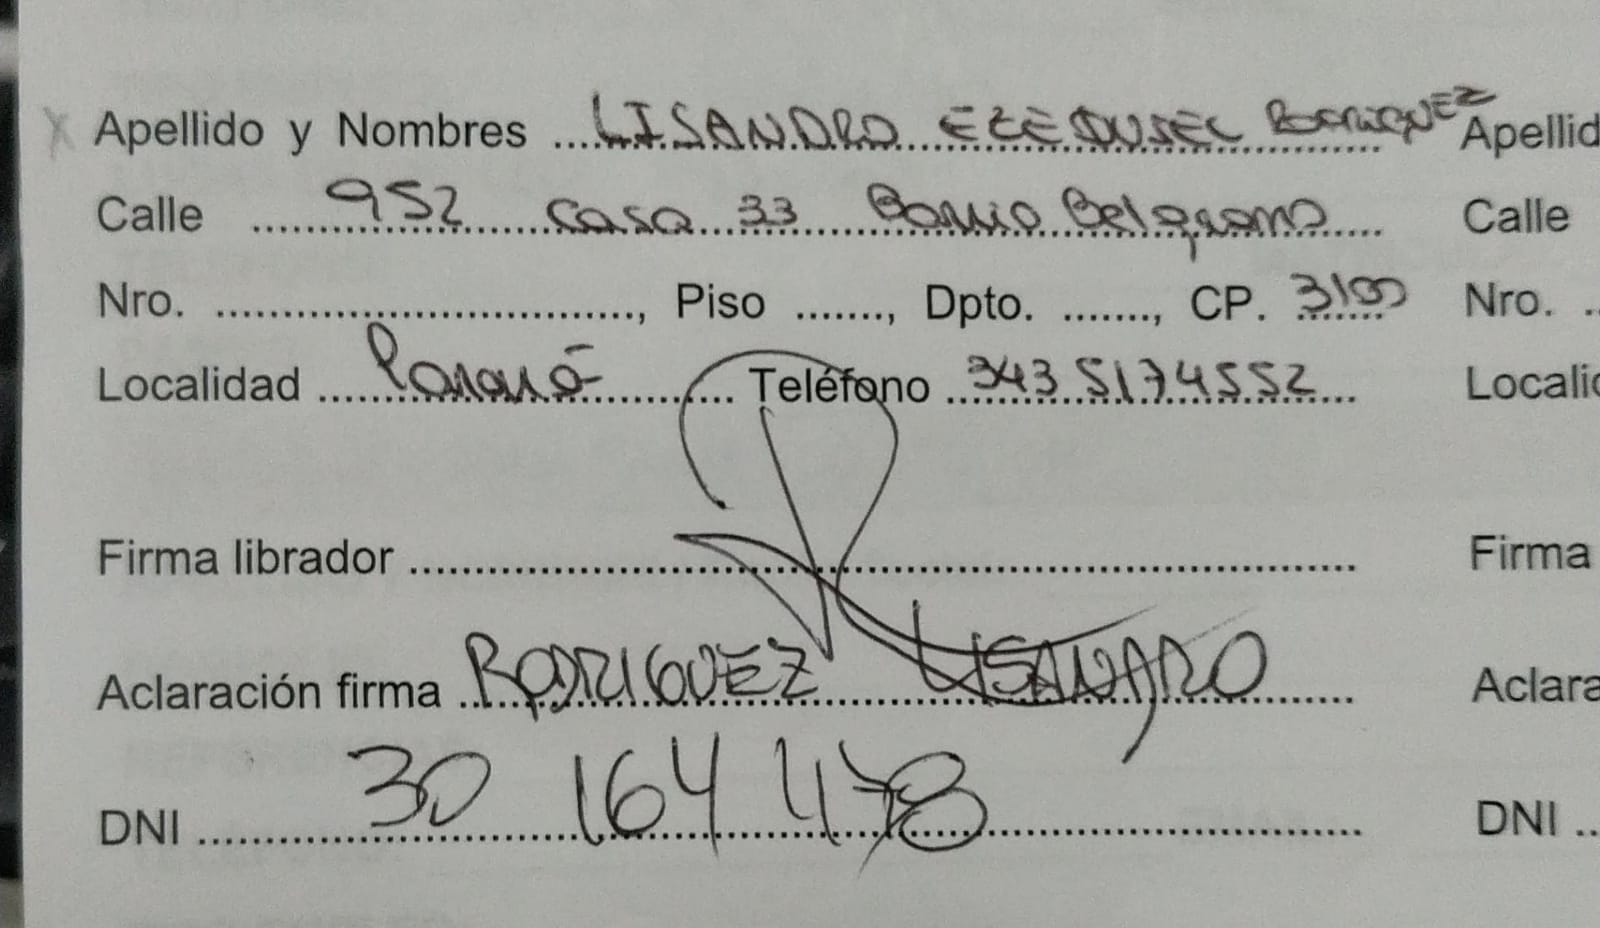 Apellido y Nombres LISANDRO EZEQUIEL RODRIGUEZ Apellid
Calle 952 casa 33 Barrio Belgrano Calle
Nro. , Piso , Dpto. , CP. 3100 Nro.
Localidad Paraná Teléfono 343 5174552 Localid
Firma librador Firma
Aclaración firma RODRIGUEZ LISANDRO Aclara
DNI 30 164 478 DNI